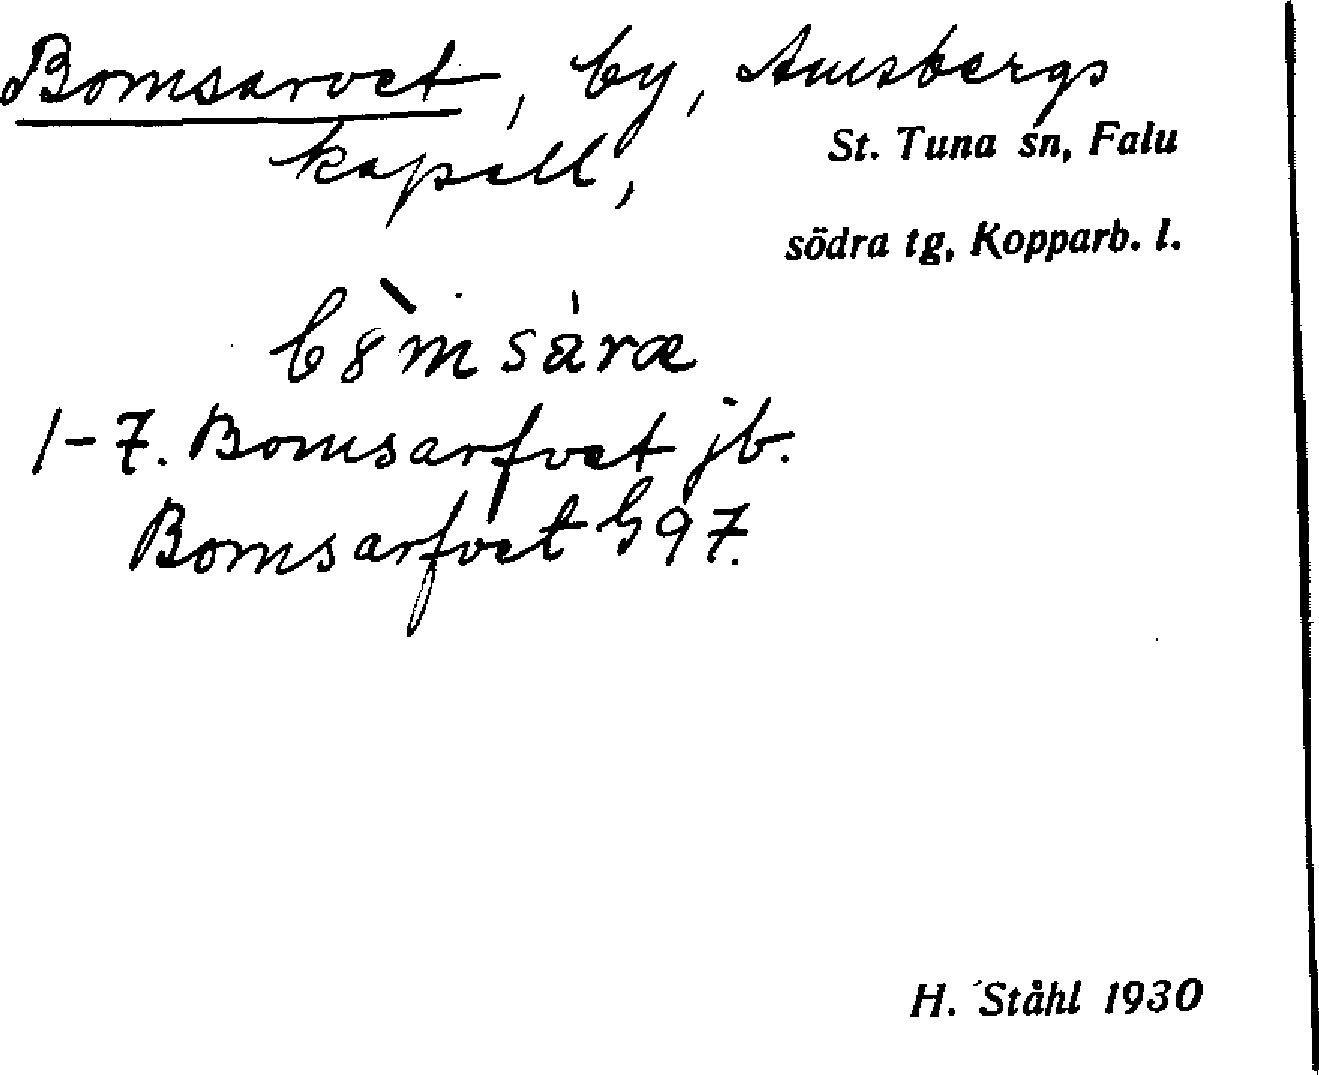 Bomsarvet, by, Amsbergs
St. Tuna sn, Falu
kapell,
södra tg, Kopparb. l.
1-7. Bomsarfvet jb.
Bomsarfvet G97.
H. Ståhl 1930